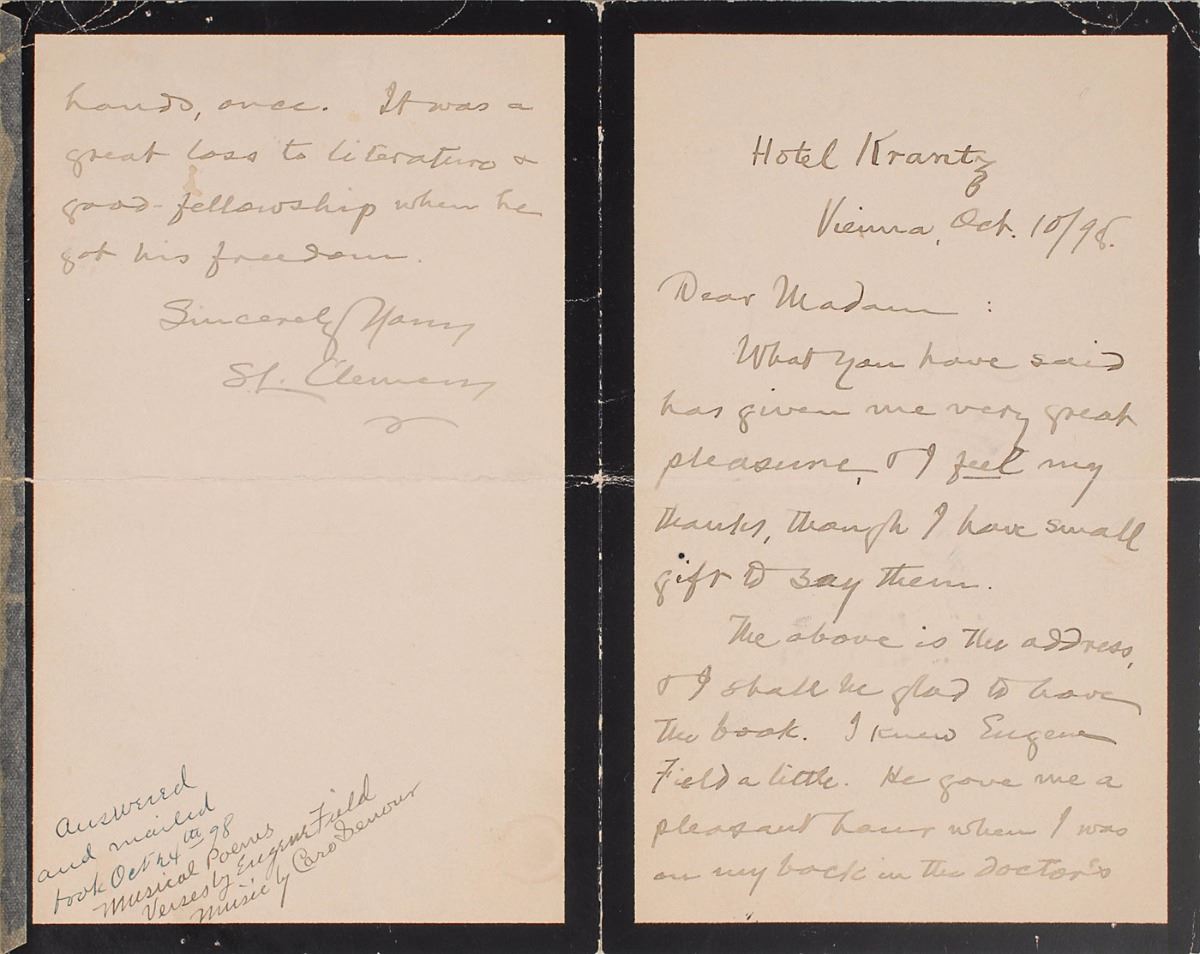 Hotel Krantz
Vienna, Oct. 10/98.
Dear Madam :
What you have said
has given me very great
pleasure, & I feel my
thanks, though I have small
gift to say them.
The above is the address,
& I shall be glad to have
the book. I knew Eugene
Field a little. He gave me a
pleasant hour when I was
on my back in the doctor's
hands, once. It was a
great loss to literature &
good-fellowship when he
got his freedom.
Sincerely Yours
SL. Clemens
Answered
and mailed
book Oct 24th 98
Musical Poems
Verses by Eugene Field
Music by Caro Senour